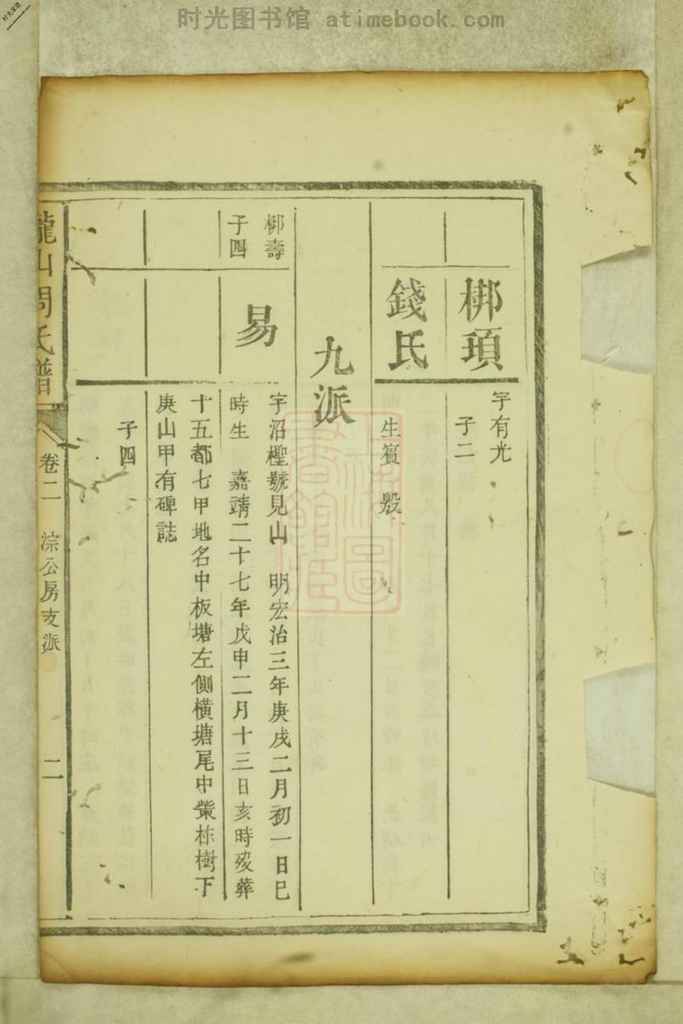 时光图书馆 atimebook.com
梆項
字有光
子二
錢氏
生賓 殷
九派
梆壽
子四
易
字沼㮐號見山 明宏治三年庚戌二月初一日巳
時生 嘉靖二十七年戊申二月十三日亥時歿葬
十五都七甲地名中板塘左側橫塘尾中藂栋樹下
庚山甲有碑誌
子四
隴山周氏譜
卷二
淙公房支派
二